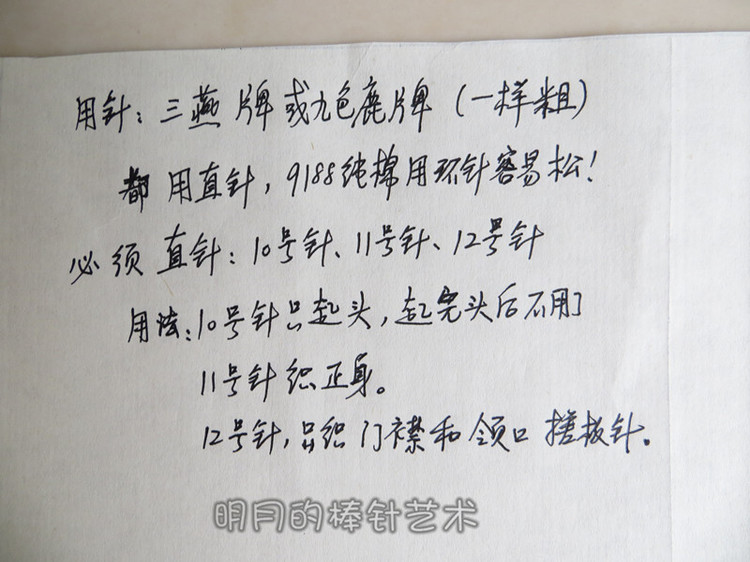 用针：三燕牌或九色鹿牌（一样粗）
都用直针，9188纯棉用环针容易松！
必须直针：10号针、11号针、12号针
用法：10号针只起头，起完头后不用了
11号针织正身。
12号针，只织门襟和领口搓板针。
明月的棒针艺术